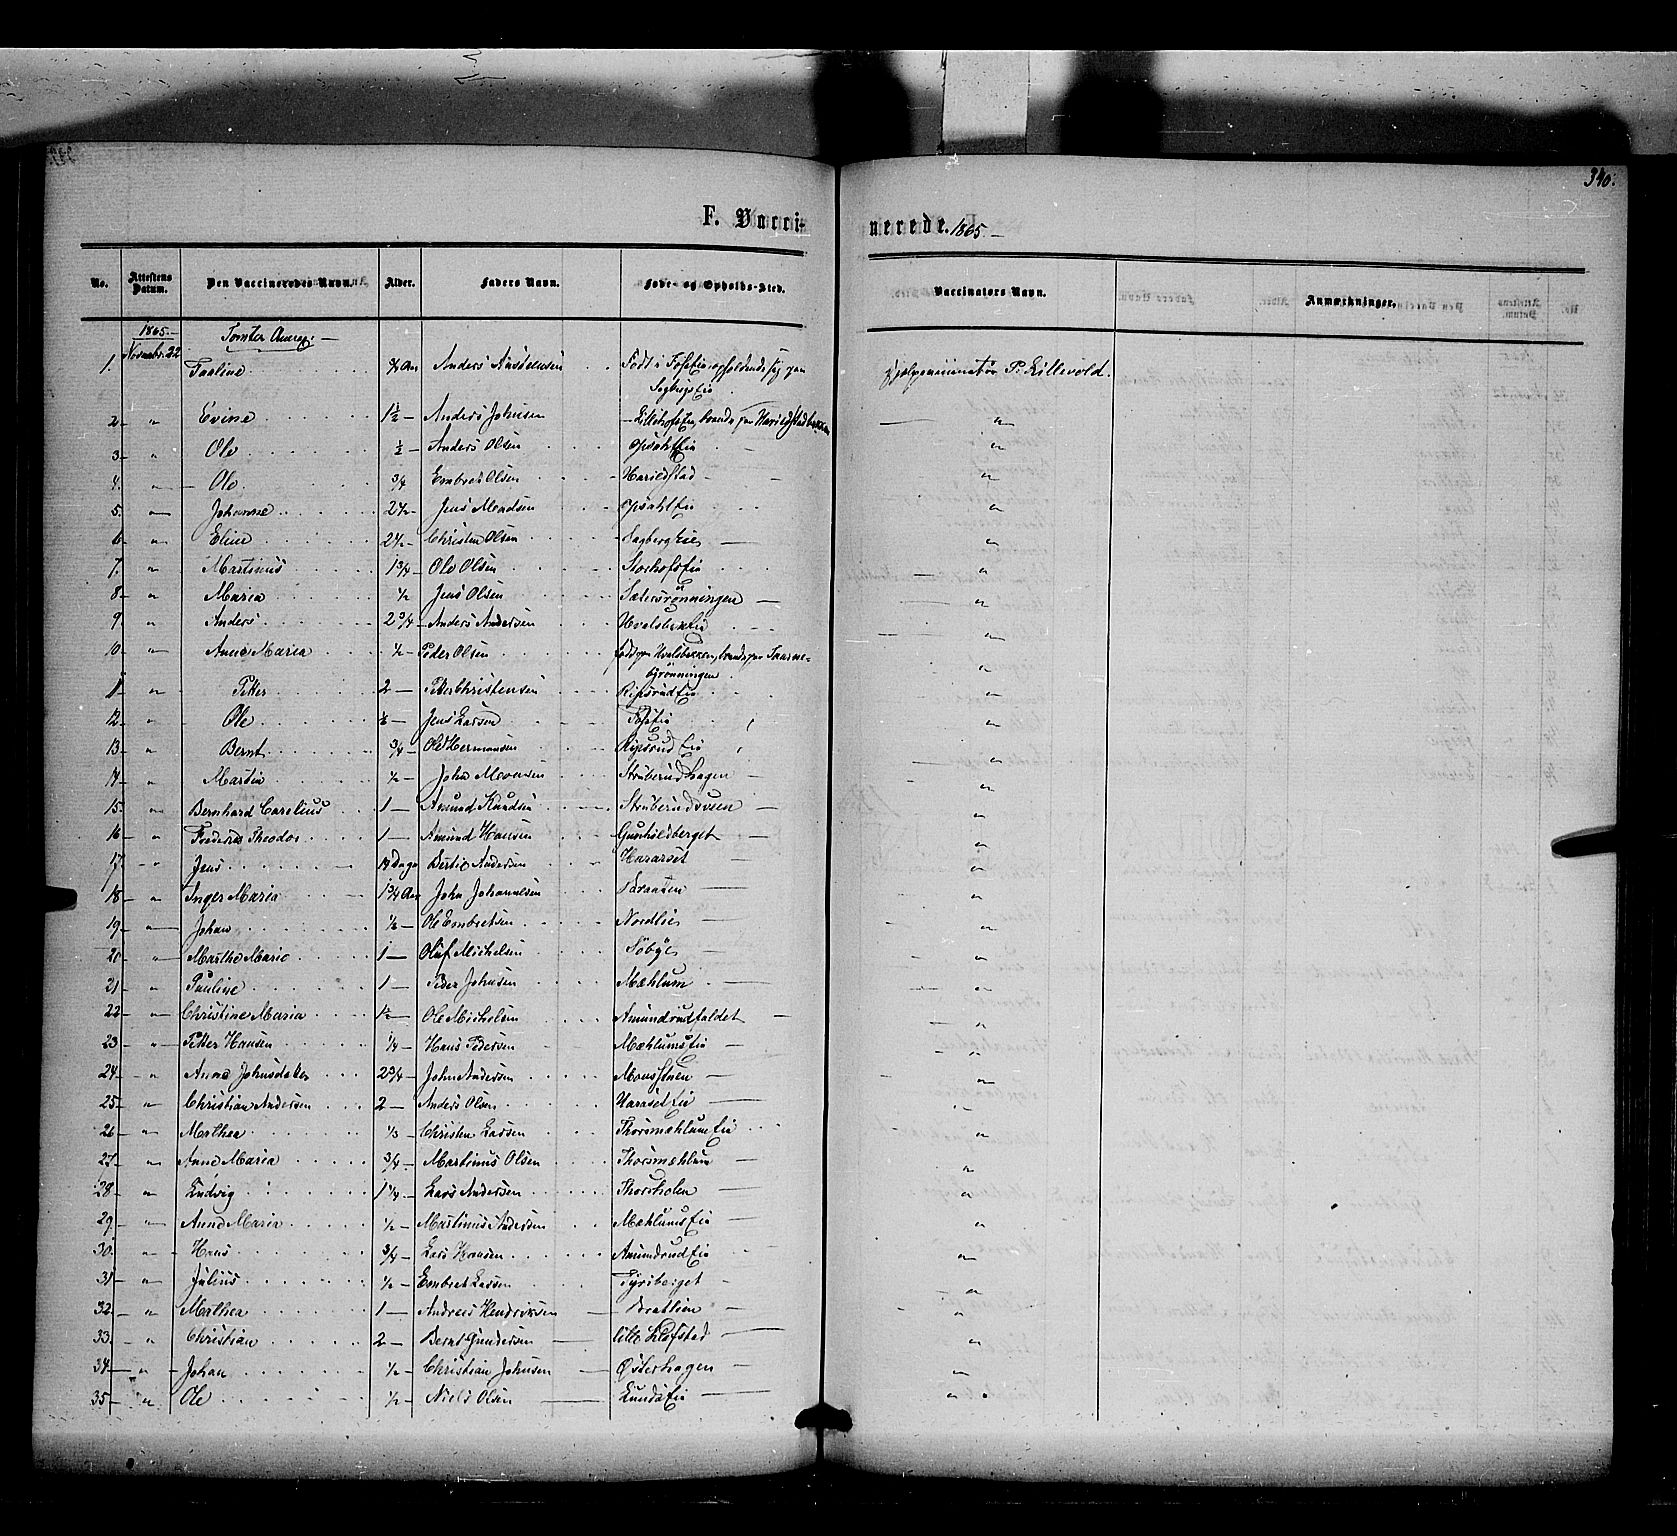 340.
F. Vacci-nerede. 1865
No. Attestens Datum. Den Vaccineredes Navn. Alder. Faders Navn. Føde- og Opholds-Sted. Vaccinators Navn. Anmærkninger.
1865. Tomter Annex:
1. Novembr. 22 Pauline ¾ Aar Anders Født i Hjelpevaccinatør P. Lillevold.
2 " Evine 1½ Anders Johnsen Lillehofseie, "
3 " Ole ½ Anders Olsen Opsahleie "
4. " Ole ¾ Embret Olsen Harildstad "
5. " Johanne 2½ Jens Madsen Opsahleie "
6 " Eline 2½ Christen Olsen Sagbergeie "
7. " Martinus 1¾ Ole Olsen Storhofseie "
8 " Maria ½ Jens Olsen Sætersrønningen "
9 " Anders 2¾ Anders Andersen "
10. " Anne Maria ½ Peder Olsen født paa Hvalsbakken,
rønningen "
11 " Petter 2 Petter Christensen Ripsrudeie "
12 " Ole ½ Jens Larsen "
13 " Bernt ¾ Ole Hermansen Ripsrudeie "
14 " Martin ½ John Monsen Struberudhagen "
15 " Bernhard Carelius 1 Amund Knudsen Struberudsveen "
16 " Frederik Theodor 1 Amund Hansen Gunhildberget "
17. " Jens Dage Bertil Andersen Hararset "
18 " Inger Maria 1¾ Aar John Johannesen Braaten "
19 " Johan ½ Ole Embretsen Nordlie "
20 " Marthe Marie 1 Oluf Michelsen Søbye "
21 " Pauline 1 Peder Johnsen Mæhlum "
22 " Christine Maria 1½ Ole Michelsen Amundrudfaldet "
23 " Petter Hansen ¼ Hans Pedersen Mæhlumseie "
24 " Anne Johnsdatter 2¾ John Andersen "
25 " Christian Andersen 2 Anders Olsen Haraseteie "
26 " Mathea ⅓ Christen Larsen Thorsmæhlumeie "
27 " Anne Maria ¾ Martinus Olsen Thorsmæhlum "
28 " Ludvig 1¼ Lars Andersen Thorsholen "
29 " Anne Maria ½ Martinus Andersen Mæhlumseie "
30. " Hans ¾ Lars Hansen Amundrudeie "
31 " Julius ½ Embret Larsen Tyriberget "
32 " Mathea 1 Andreas Hendriksen Bratlien "
33. " Christian 2 Bernt Gundersen lille Kløfstad "
34 " Johan ½ Christian Johnsen Østerhagen "
35 " Ole ½ Niels Olsen Lundseie "